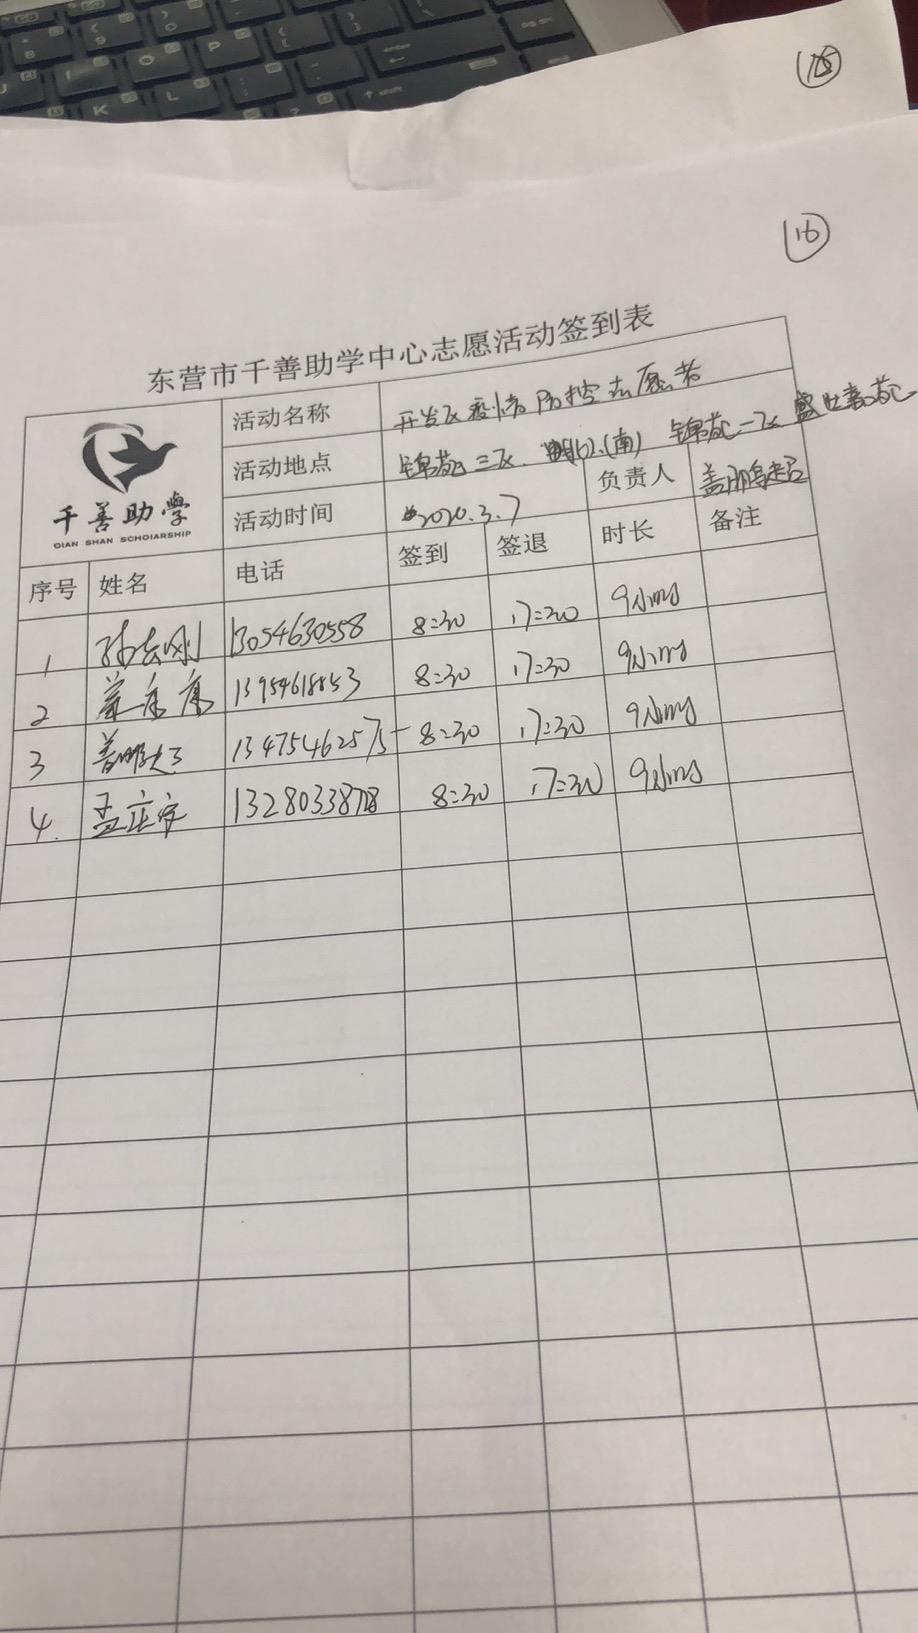 16
东营市千善助学中心志愿活动签到表
千善助學
QIAN SHAN SCHOIARSHIP
活动名称 开发区疫情防控志愿者
活动地点 锦苑三区 (南) 锦苑一区 盛世嘉苑
活动时间 2020.3.7 负责人 盖鹏超
序号 姓名 电话 签到 签退 时长 备注
1 13054630558 8:30 17:30 9小时
2 13954618853 8:30 17:30 9小时
3 盖鹏超 13475462575 8:30 17:30 9小时
4. 孟庄宇 8:30 17:30 9小时